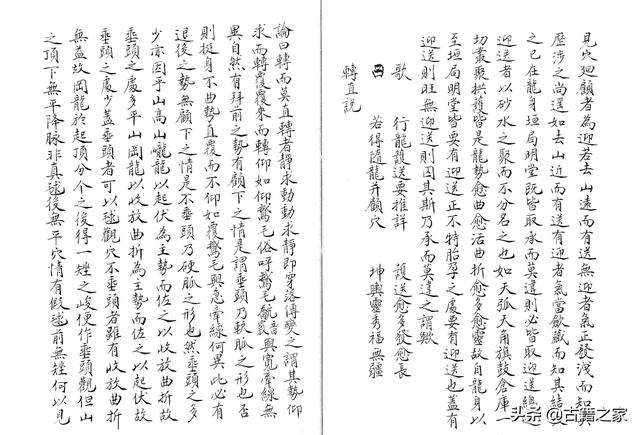 見穴廻顧者為迎若去山遠而有送無迎者氣正發洩而知其
歷涉之尚遥如去山近而有送有迎者氣當歛藏而知其結
之已在龍身垣局明堂既皆取承而莫違則必皆取迎送總
迎送者以砂水之聚而不分名之也如天弧天角旗鼓倉庫一
切叢聚拱護皆是龍勢愈曲愈活曲折愈多愈靈故自龍身以
至垣局明堂皆要有迎送正不特胎孕之處要有迎送也蓋有
迎送則旺無迎送則囚其斯乃承而莫違之謂歟
歌 行龍護送要推詳 護送愈多發愈長
曰 若得隨龍并顧穴 坤輿靈秀福無疆
轉直説
論曰轉而莫直轉者靜求動動求靜即穿落傳變之謂其勢仰
求而轉覆覆來而轉仰如仰鵞毛俗呼鵞毛與寬牽線無
異自然有拜前之勢有顧下之情是謂垂頭乃軟脈之形也否
則挺身不曲勢直覆而不仰如覆鵞毛與急牽線何異此必有
退後之勢無顧下之情是不垂頭乃硬脈之形也然垂頭之多
少亦因乎山高山巄龍以起伏為主勢而佐之以收放曲折故
垂頭之處多平山岡龍以收放曲折為主勢而佐之以起伏故
垂頭之處少蓋垂頭者可以毬觀穴不垂頭者雖有收放曲折
無益故岡龍於起頂分个之後得一矬之峻便作垂頭觀但山
之頂下無平降脉非真毬後無平穴情有假毬前無矬何以見
头条@古籍之家